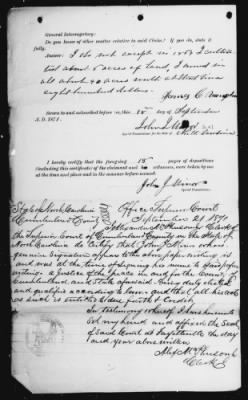 General Interrogatory.
Do you know of any other matter relative to said Claim? If you do, state it.
Answer. I do not except in 1863 I
about 5 acres of land, I owned in
all about 40 acres worth at that time
eight hundred dollars.
Sworn to and subscribed before me, this 15 day of September
A. D. 1871.
John J. Minor
I hereby certify that the foregoing 15 pages of depositions
(including this certificate of the claimant and witnesses, were taken by me
at the time and place and in the manner before stated.
John J. Minor
State of North Carolina Office Superior Court
Cumberland County September 21 1871
I Alexander McPherson Clerk of
the Superior Court of Cumberland County in the State of
North Carolina do Certify that John J. Minor whose
genuine signature appears to the above paper writing is
and was at the time of signing his name to said paper
writing a justice of the peace in and for the County of
Cumberland and State aforesaid being duly elected
and qualified according to law and that all his acts
as such is entitled to due faith & Credit
In testimony whereof I have hereunto
set my hand and affixed the Seal
of said Court at Fayetteville the day
and year above written
Alex McPherson
Clerk